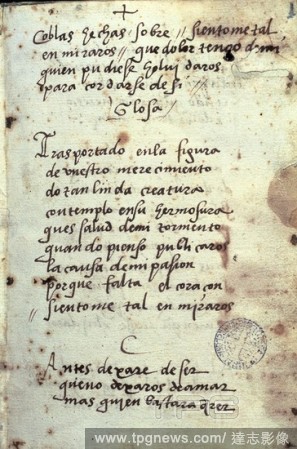 +
Coblas hechas sobre // sientome tal
en miraros // que dolor tengo de mi
quien pudiese holvidaros
para cordarse de si //
Glosa /
Trasportado enla figura
de vuestro merecimiento
de tan linda creatura
contemplo ensu hermosura
ques salud demi tormento
quando pienso publicaros
la causa demi pasion
porque falta el coracon
sientome tal en miraros
C
Antes dexare de ser
queno dexaros de amar
mas quien bastara
www.tpgnews.com/ 達志影像